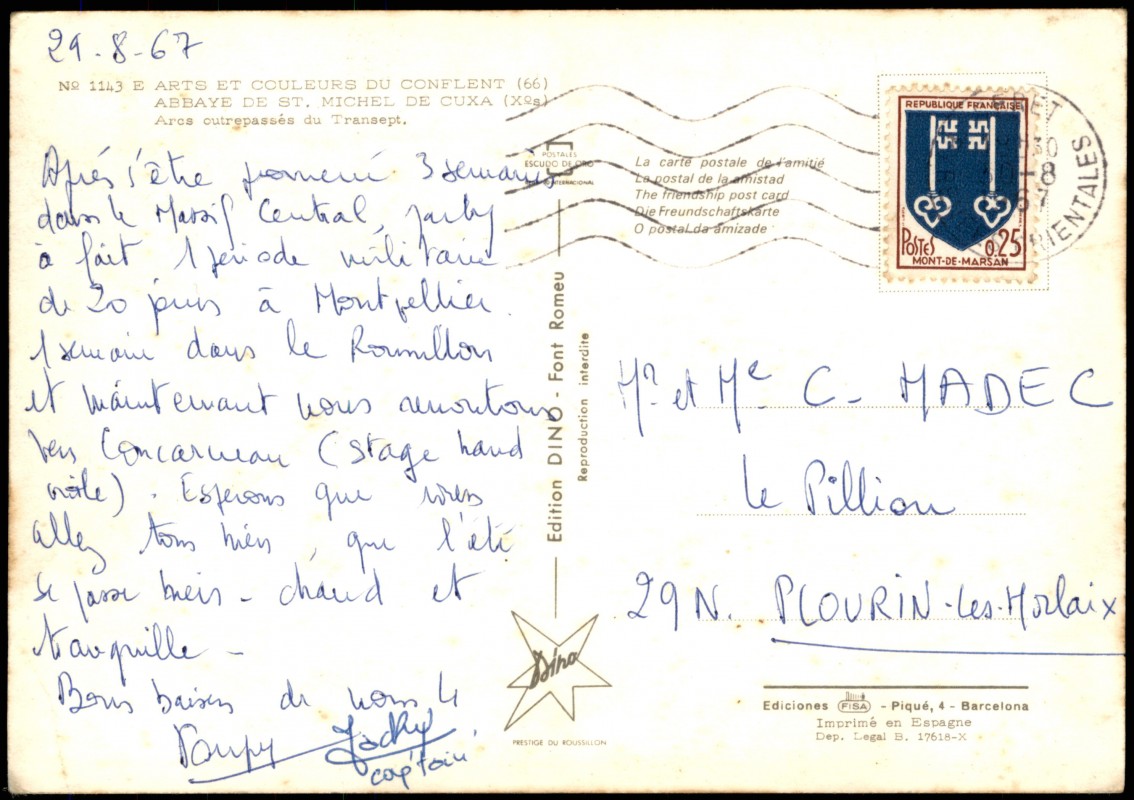 29-8-67
Nº 1143 E ARTS ET COULEURS DU CONFLENT (66)
ABBAYE DE ST. MICHEL DE CUXA (Xºs)
Arcs outrepassés du Transept.
Après s'être promené 3 semaines
dans le Massif Central, Jacky
à fait 1 période militaire
de 20 jours à Montpellier.
1 semaine dans le Roussillon
et maintenant nous remontons
vers Concarneau (stage hand
voile). Esperons que vous
allez tous bien, que l'été
se passe bien - chaud et
tranquille -
Bons baisers de nous 4
Jacky
capitain
POSTALES
ESCUDO DE ORO
INTERNACIONAL
La carte postale de l'amitié
La postal de la amistad
The friendship post card
Die Freundschaftskarte
O postal da amizade
Edition DINO - Font Romeu
Reproduction interdite
Dino
PRESTIGE DU ROUSSILLON
REPUBLIQUE FRANÇAISE
POSTES 0,25
MONT-DE-MARSAN
CERET
30
-8
ORIENTALES
Mr et Me C. MADEC
Le Pillion
29N. PLOURIN-Les-Morlaix
Ediciones FISA - Piqué, 4 - Barcelona
Imprimé en Espagne
Dep. Legal B. 17618-X